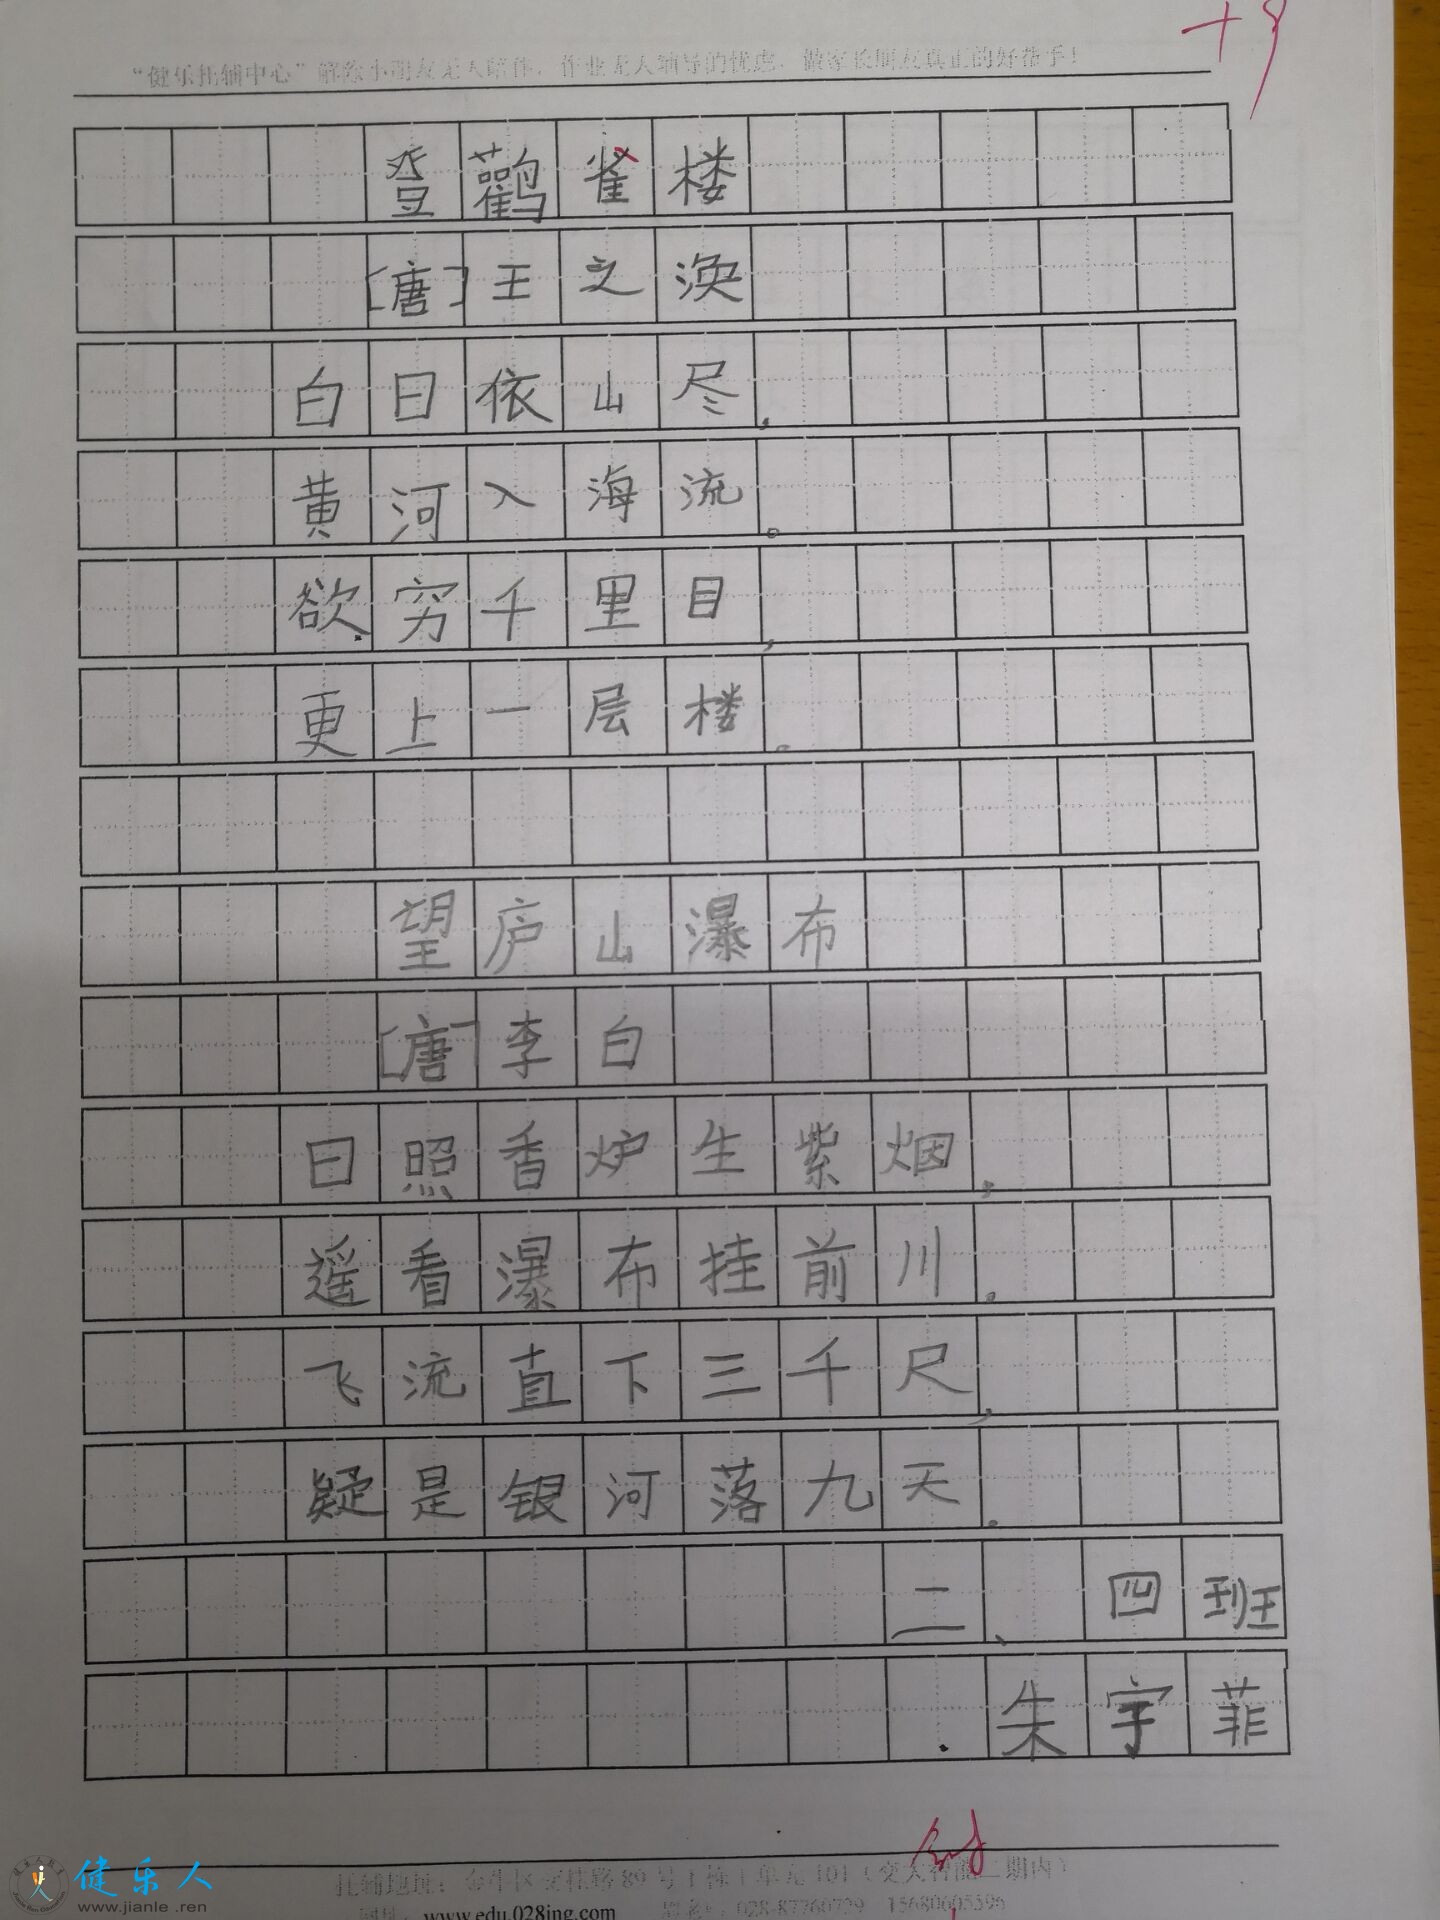 "健乐托辅中心"解除小朋友无人陪伴、作业无人辅导的忧虑，做家长朋友真正的好帮手！
登鹳雀楼
[唐]王之涣
白日依山尽，
黄河入海流。
欲穷千里目，
更上一层楼。
望庐山瀑布
[唐]李白
日照香炉生紫烟，
遥看瀑布挂前川。
飞流直下三千尺，
疑是银河落九天。
二、四班
朱宇菲
托辅地址：金牛区交桂路89号1栋1单元101（交大智能二期内）
www.edu.028jng.com 028-87760729 15680605596
健乐人
www.jianle.ren